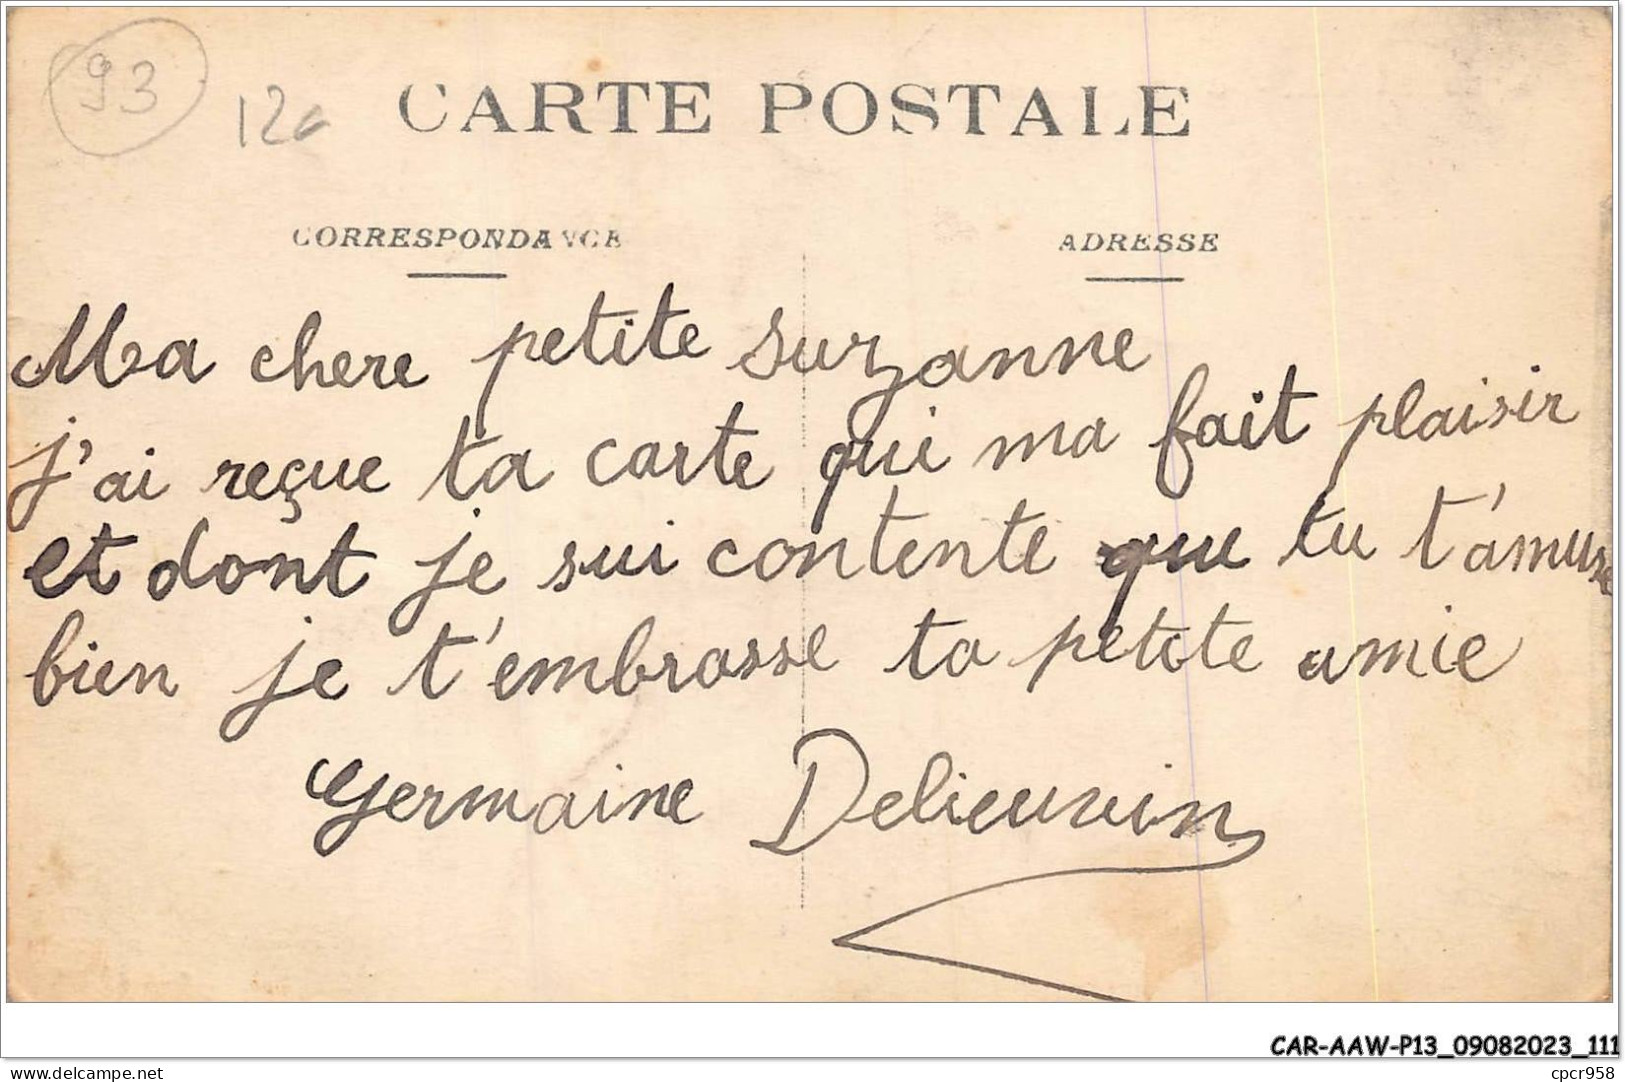 93
12
CARTE POSTALE
CORRESPONDANCE
ADRESSE
Ma chere petite Suzanne
j'ai reçue ta carte qui ma fait plaisir
et dont je sui contente que tu t'amuse
bien je t'embrasse ta petite amie
Germaine Delieuvin
CAR-AAW-P13_09082023_111
www.delcampe.net
cpcr958